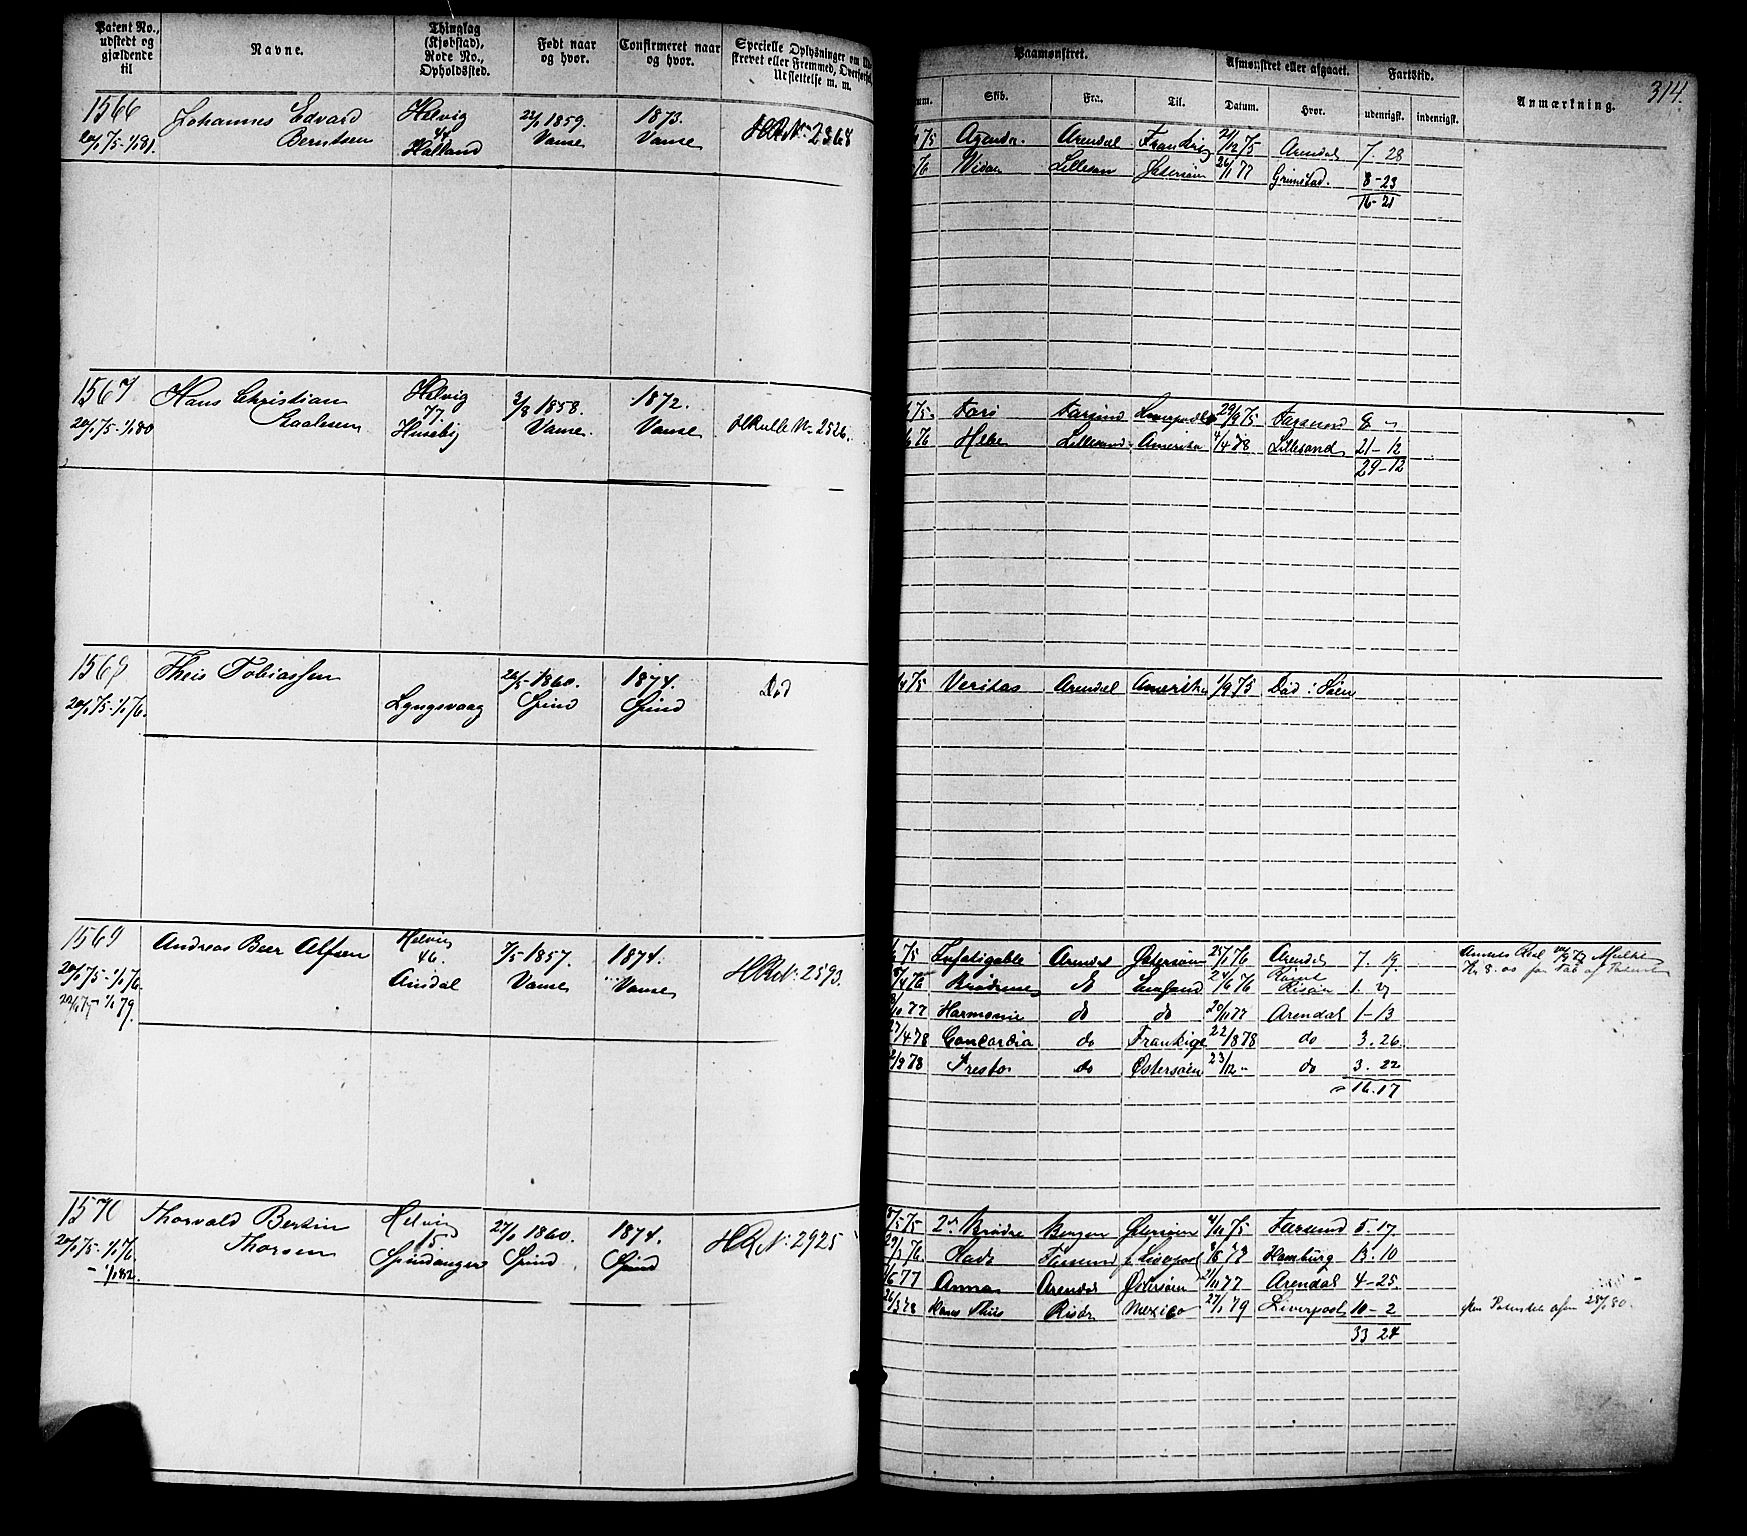 Patent No., udstedt og gjældende til
Navne.
Thinglag (Kjøbstad), Rode No., Opholdssted.
Født naar og hvor.
Confirmeret naar og hvor.
Specielle Oplysninger om
skrevet eller Fremmed, Overførsel,
Udslettelse m. m.
1566
Johannes Edvard
Berntsen
Helvig
44
Halland
22/1 1859.
Vanse
1873.
Vanse
HR No 2368
1567
20/1 75-1/1 80
Hans Christian
Helvig
77.
Huseby
2/8 1858.
Vanse
1872.
Vanse
HRulle No 2526.
1568
20/1 75-1/1 76.
Theis Tobiassen
Lyngsvaag
26/5-1860.
Spind
1874.
Spind
Død
1569
20/1 75-1/1 76.
20/1 75-1/1 79.
Andreas Beer Alfsen
Helvig
46.
Aisdal
7/5-1857.
Vanse
1874.
Vanse
HR No: 2593.
1570
20/1 75-1/1 76.
- 1/1 82.
Thorvald Bertin
Thorsen
Helvig
15
Spindanger
27/1 1860.
Spind
1874.
Spind
HR No: 2925
314.
Paamønstret.
Afmønstret eller afgaaet.
Fartstid.
Anmærkning.
Skib.
Fra.
Til.
Datum.
Hvor.
udenrigst.
indenrigst.
75 Agenda. Arendal Frankrig 21/12 75 Arendal 7. 28
76 Vidar Lillesan Østersøen 26/11 77 Grimstad. 8-23
16-21
75 Farsund 29/9 75 Farsund 8 "
76 Lillesand Amerika 4/4 78 Lillesand 21-12
29-12
75 Veritas Arendal Amerika 1/9 75 Død i Søen
75 Infatigable Arendal Østersøen 25/11 76 Arendal 7. 19.
76 Brødrene England 24/6 76 Risør 1.
77 Harmonie do do 20/11 77 Arendal 1-13
27/4 78 Concordia do Frankrige 22/8 78 do 3. 26
2/9 78 Presto do Østersøen 23/12 - do 3. 22
16. 17
75 2de Brødre Bergen Østersøen 4/11 75 Farsund 5. 17.
76 Farsund Hamburg 13. 10
77 Anna Arendal Østersøen 77 Arendal 4-25
26/3 78 Hans Thiis Risør Mexico 27/1 79 Liverpool 10-2
33 24